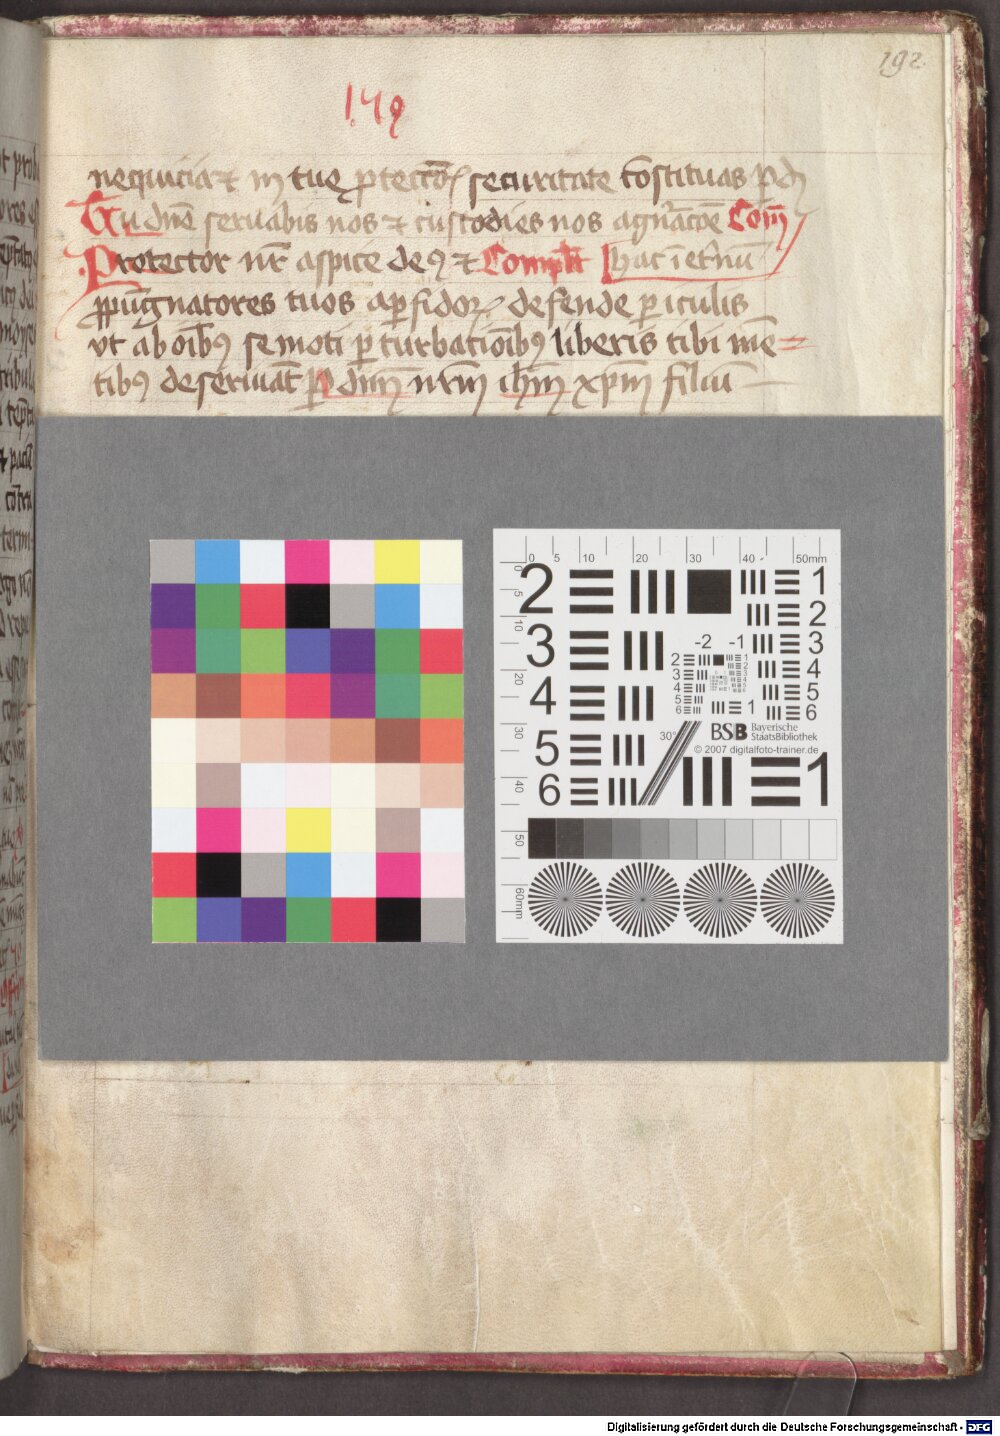 192
149
nequiciā et in tue ꝓtecciōis securitate cōstituas P d
Tu dn̄e seruabis nos et custodies nos a gn̄acōe Com̄
Protector nr̄ aspice deꝰ et Compl̄t Hac ī et̄nū
ꝓpūgnatores tuos a ꝑfidorꝫ defende ꝑiculis
vt ab oībꝰ semoti ꝑturbacōībꝰ liberis tibi mē=
tibꝰ deseruiāt P dn̄m nr̄m ihm̄ xpm̄ filiū
0 5 10 20 30 40 50mm
0 5 10 20 30 40 50 60mm
2 1
2
3 -2 -1 3
4 4
5
6
5 30° 1
6 1
BSB Bayerische
StaatsBibliothek
© 2007 digitalfoto-trainer.de
Digitalisierung gefördert durch die Deutsche Forschungsgemeinschaft - DFG